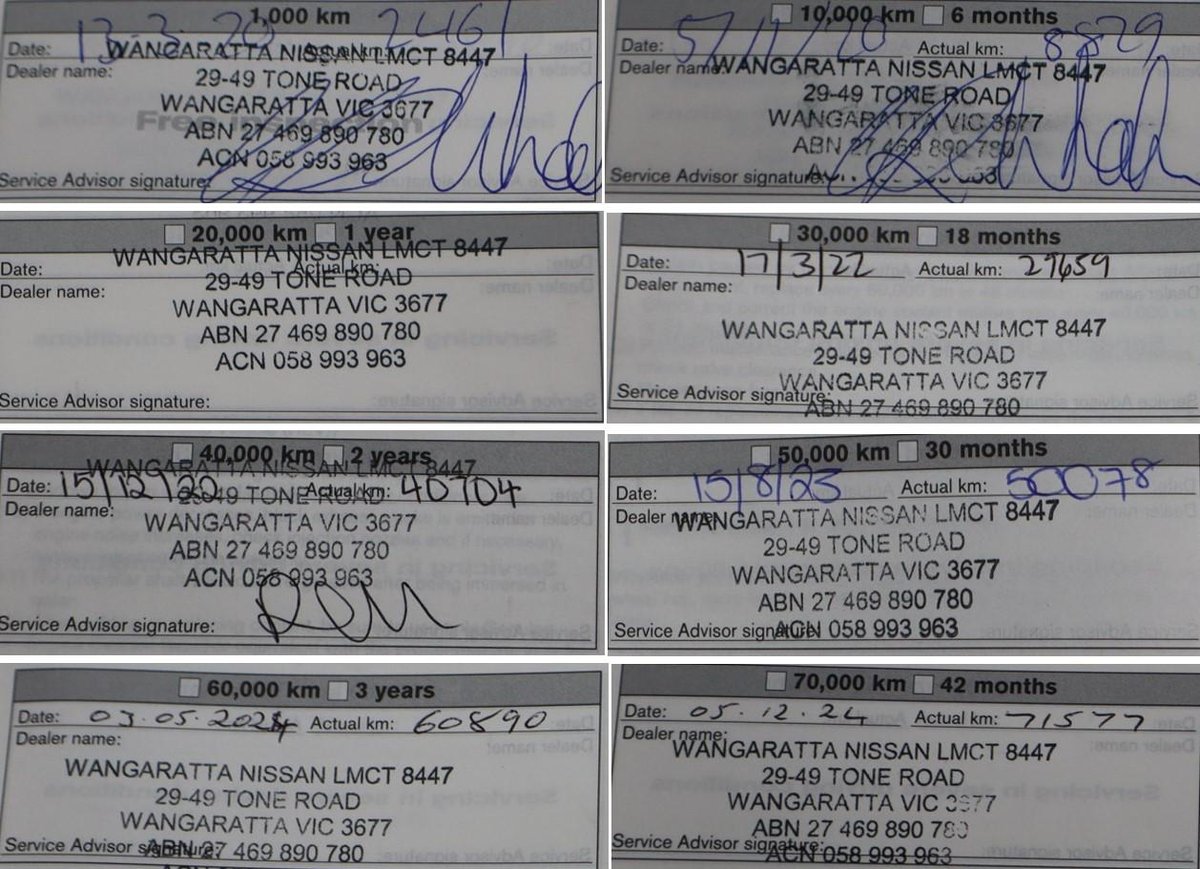 1,000 km
Date: 13-3-20 Actual km: 2461
Dealer name:
WANGARATTA NISSAN LMCT 8447
29-49 TONE ROAD
WANGARATTA VIC 3677
Free inspection
ABN 27 469 890 780
ACN 058 993 963
Service Advisor signature:
10,000 km 6 months
Date: 5/11/20 Actual km: 8829
Dealer name:
WANGARATTA NISSAN LMCT 8447
29-49 TONE ROAD
WANGARATTA VIC 3677
ABN 27 469 890 780
Service Advisor signature:
20,000 km 1 year
WANGARATTA NISSAN LMCT 8447
Date: Actual km:
29-49 TONE ROAD
Dealer name:
WANGARATTA VIC 3677
ABN 27 469 890 780
ACN 058 993 963
Service Advisor signature:
30,000 km 18 months
Date: 17/3/22 Actual km: 29659
Dealer name:
WANGARATTA NISSAN LMCT 8447
29-49 TONE ROAD
WANGARATTA VIC 3677
Service Advisor signature:
ABN 27 469 890 780
40,000 km 2 years
WANGARATTA NISSAN LMCT 8447
Date: 15/12/20 Actual km: 40704
29-49 TONE ROAD
Dealer name:
WANGARATTA VIC 3677
ABN 27 469 890 780
ACN 058 993 963
Service Advisor signature:
50,000 km 30 months
Date: 15/8/23 Actual km: 50078
Dealer name:
WANGARATTA NISSAN LMCT 8447
29-49 TONE ROAD
WANGARATTA VIC 3677
ABN 27 469 890 780
Service Advisor signature:
ACN 058 993 963
60,000 km 3 years
Date: 03.05.2024 Actual km: 60890
Dealer name:
WANGARATTA NISSAN LMCT 8447
29-49 TONE ROAD
WANGARATTA VIC 3677
Service Advisor signature:
ABN 27 469 890 780
70,000 km 42 months
Date: 05.12.24 Actual km: 71577
Dealer name:
WANGARATTA NISSAN LMCT 8447
29-49 TONE ROAD
WANGARATTA VIC 3677
ABN 27 469 890 780
Service Advisor signature:
ACN 058 993 963